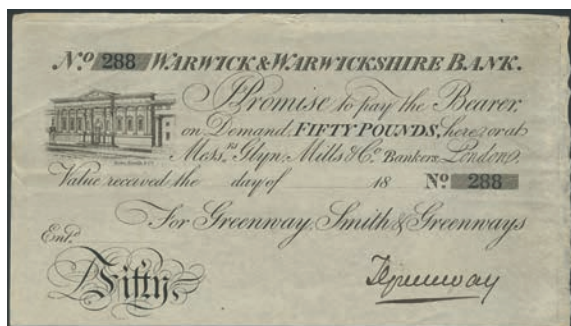 No. 288 WARWICK & WARWICKSHIRE BANK.
Promise to pay the Bearer,
on Demand, FIFTY POUNDS, here or at
Messrs. Glyn, Mills & Co. Bankers, London.
Value received the day of 18 No. 288
For Greenway, Smith & Greenways
Entd.
Fifty
Greenway